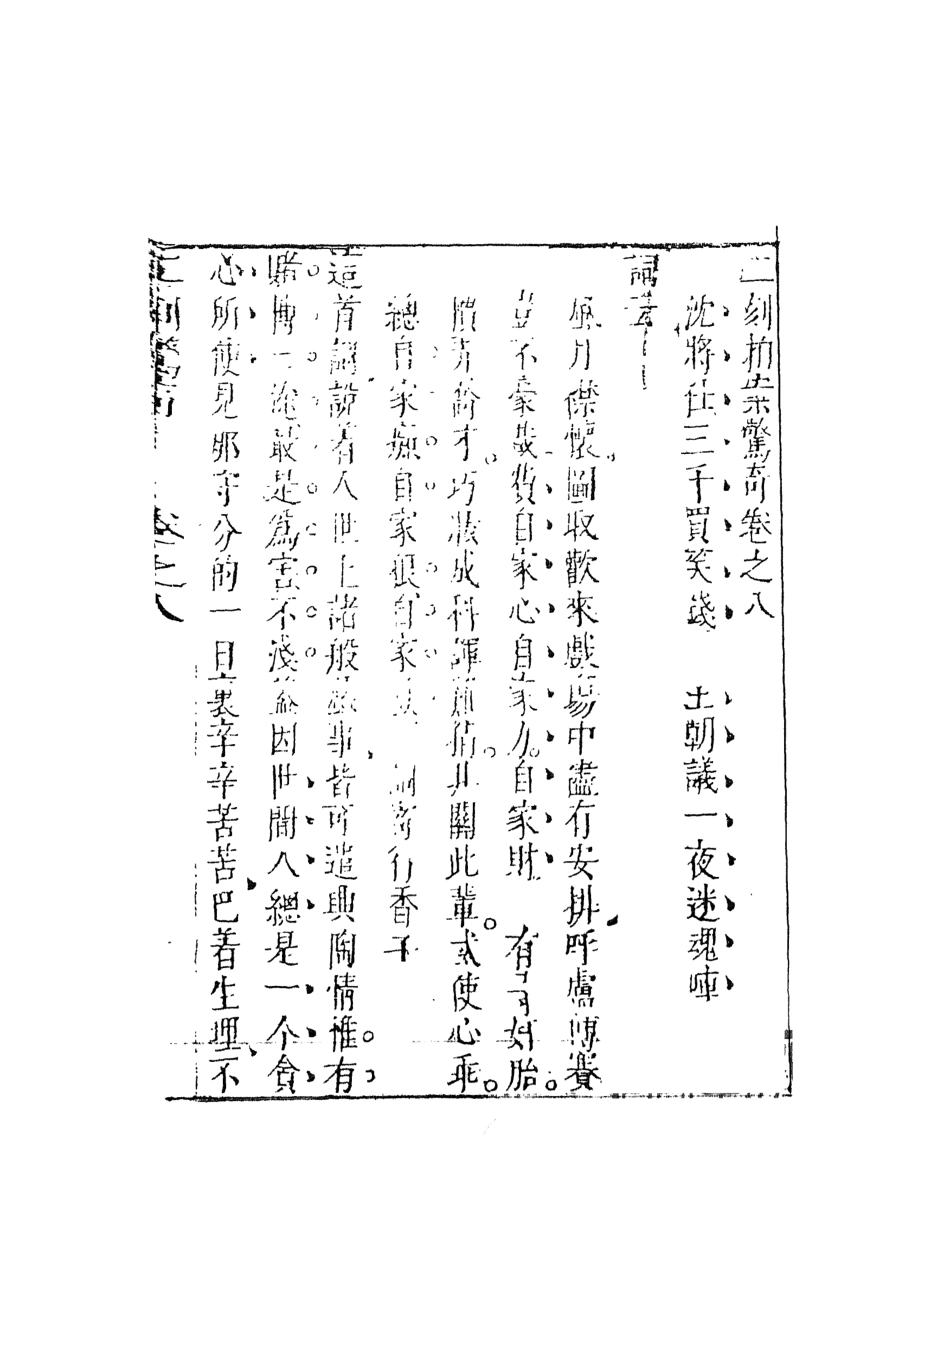 二刻拍案驚奇卷之八
沈將仕三千買笑錢 王朝議一夜迷魂陣
詞云
風月襟懷圖取歡來戲場中盡有安排呼盧博賽
豈不豪哉費自家心自家力自家財 有等奸胎
慣弄喬才巧妝成科諢難猜其關此輩忒使心乖
總自家癡自家狠自家 詞寄行香子
這首詞說着人世上諸般戲事皆可遣興陶情惟有
賭博一途最是爲害不淺蓋因世間人總是一个貪
心所使見那守分的一日裏辛辛苦苦巴着生理不
二刻驚奇 卷之八